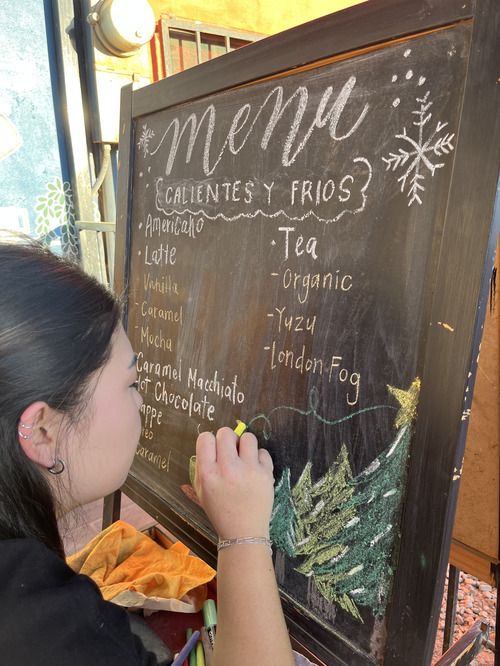 menu
CALIENTES Y FRIOS
• Americano
• Latte
- Vanilla
- Caramel
- Mocha
Caramel Macchiato
Hot Chocolate
• Tea
- Organic
- Yuzu
- London Fog